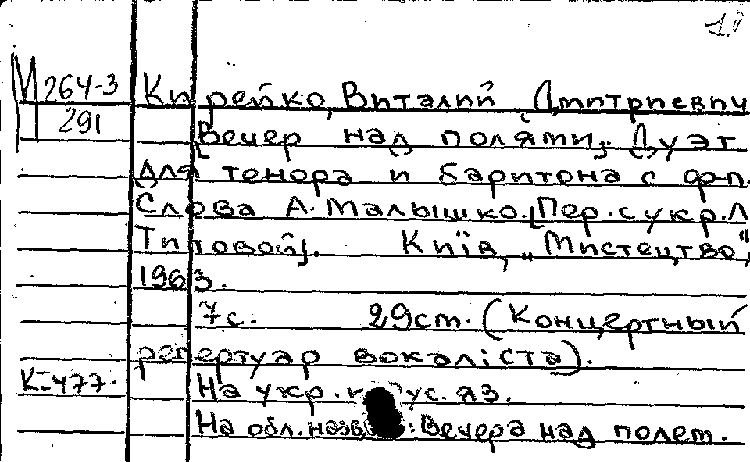 М 264-3
291
Кирейко, Виталий Дмитриевич
[Вечер над полями]. Дуэт
для тенора и баритона с ф-п.
Слова А. Малышко. [Пер. с укр. Л
Титовой]. Київ, "Мистецтво",
1963.
7с. 29cm. (Концертный
репертуар вокаліста).
К-477.
На укр. и рус. яз.
На обл. назв.: Вечера над полем.